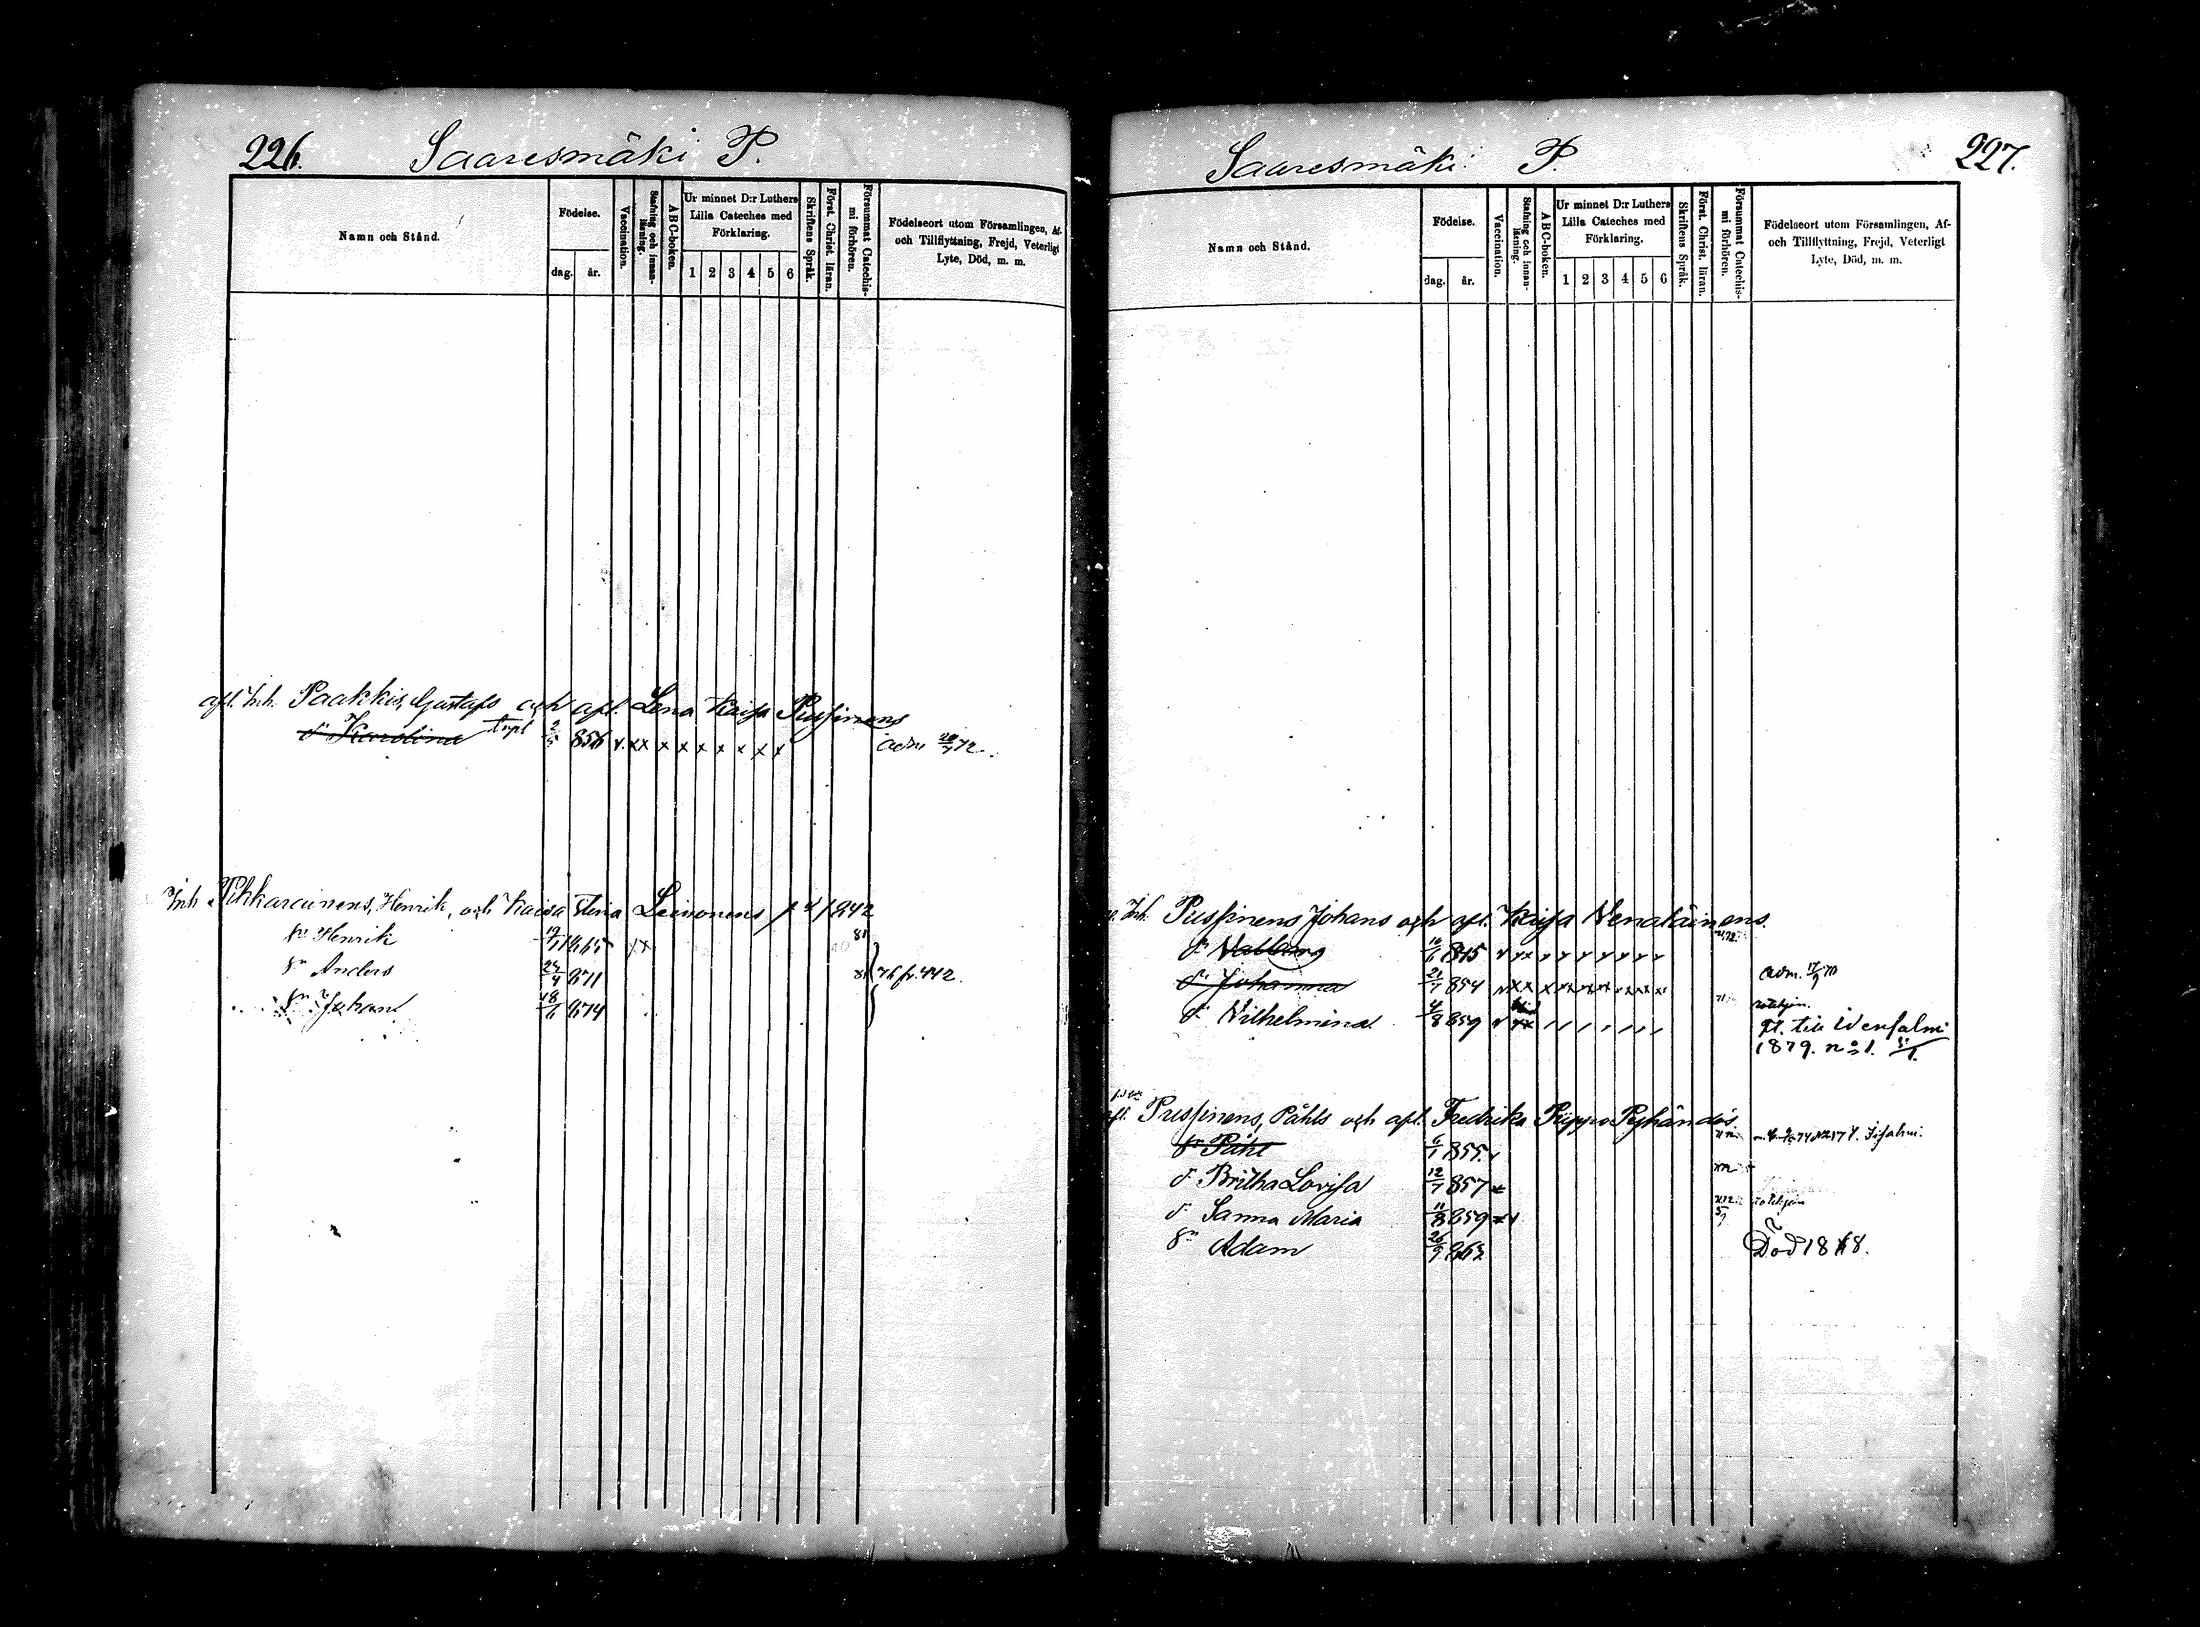 226.
Saaresmäki P.
Namn och Stånd.
Födelse.
dag.
år.
Vaccination.
Stafning och innan-läsning.
ABC-boken.
Ur minnet D:r Luthers
Lilla Cateches med
Förklaring.
1 2 3 4 5 6
Skriftens Språk.
Först. Christ. läran.
Försummat Catechis-mi förhören.
Födelseort utom Församlingen, Af-
och Tillflyttning, Frejd, Veterligt
Lyte, Död, m. m.
afl. Inh. Paakkis, Gustafs och afl. Lena Kaisa Pussinens
dr Karolina 856 adm 72.
Inh. Pikkarainens, Henrik, och Kaisa Stina Leivonens p 442
sn Henrik 1865 81
sn Anders 24/4 871 81 76 p. 442.
sn Johan 18/6 874
227.
Saaresmäki P.
Namn och Stånd.
Födelse.
dag.
år.
Vaccination.
Stafning och innan-läsning.
ABC-boken.
Ur minnet D:r Luthers
Lilla Cateches med
Förklaring.
1 2 3 4 5 6
Skriftens Språk.
Först. Christ. läran.
Försummat Catechis-mi förhören.
Födelseort utom Församlingen, Af-
och Tillflyttning, Frejd, Veterligt
Lyte, Död, m. m.
Inh. Pussinens Johans och afl. Kaisa Venäläinens.
dr Valborg
dr Johanna 21/7 854 adm. 17/9 70
dr Vilhelmina 4/8 859
fl. till Idensalmi
1879. no 1.
afl. Pussinens, Påhls och afl. Fredrika Piippo Pyhändös
sn Påhl 6/1 855
dr Britha Lovisa 12/7 857
dr Sanna Maria 11/8 859
sn Adam 26/9 863 Död 1868.